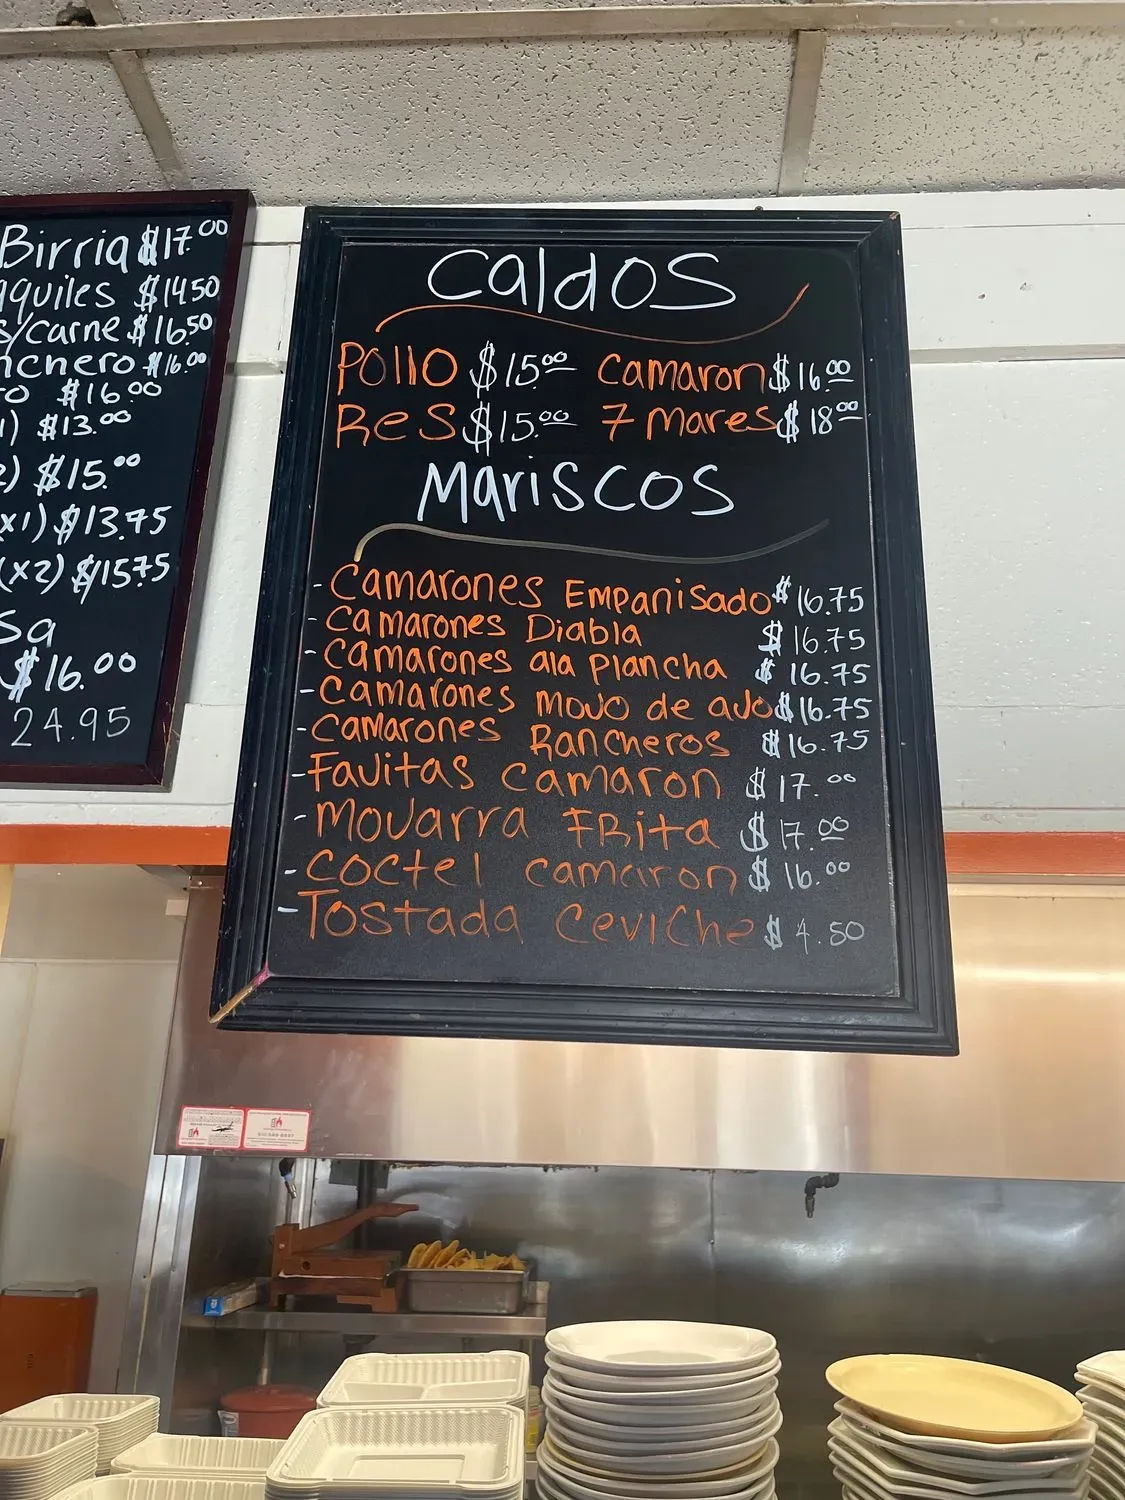 Birria $17.00
$14.50
s/carne $16.50
$16.00
$16.00
$13.00
$15.00
(x1) $13.75
(x2) $15.75
$16.00
24.95
Caldos
Pollo $15.00 Camaron $16.00
Res $15.00 7 mares $18.00
Mariscos
- Camarones Empanisado $16.75
- Camarones Diabla $16.75
- Camarones ala plancha $16.75
- Camarones moJo de aJo $16.75
- Camarones Rancheros $16.75
- FaJitas camaron $17.00
- MoJarra FRita $17.00
- Coctel camaron $16.00
- Tostada Ceviche $4.50